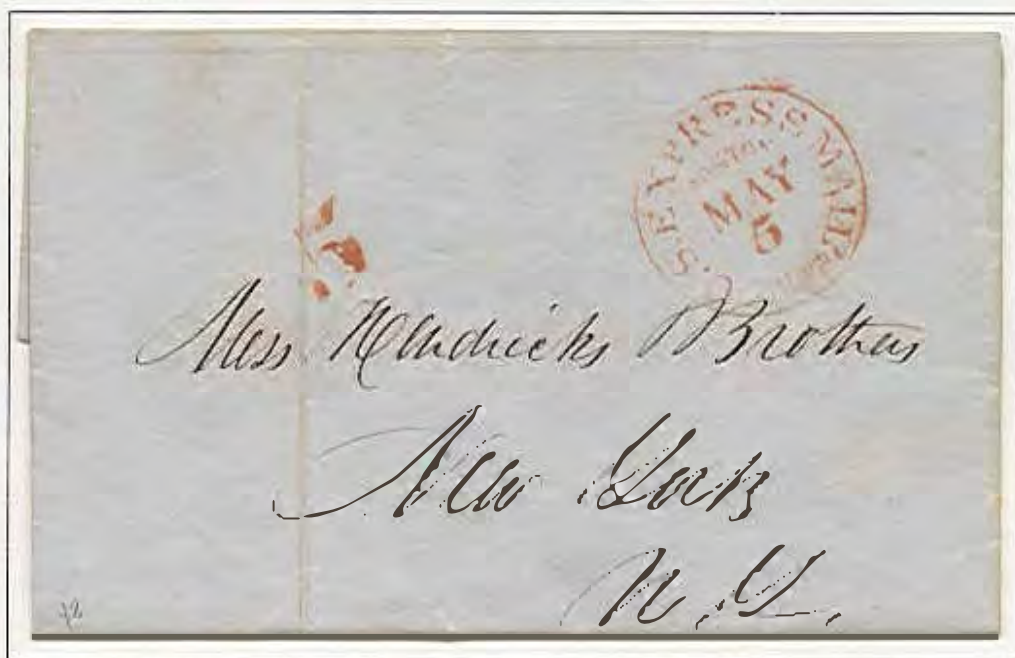 S. EXPRESS MAIL
MAY
5
5
Mess Hendricks Brothers
New York
N.Y.